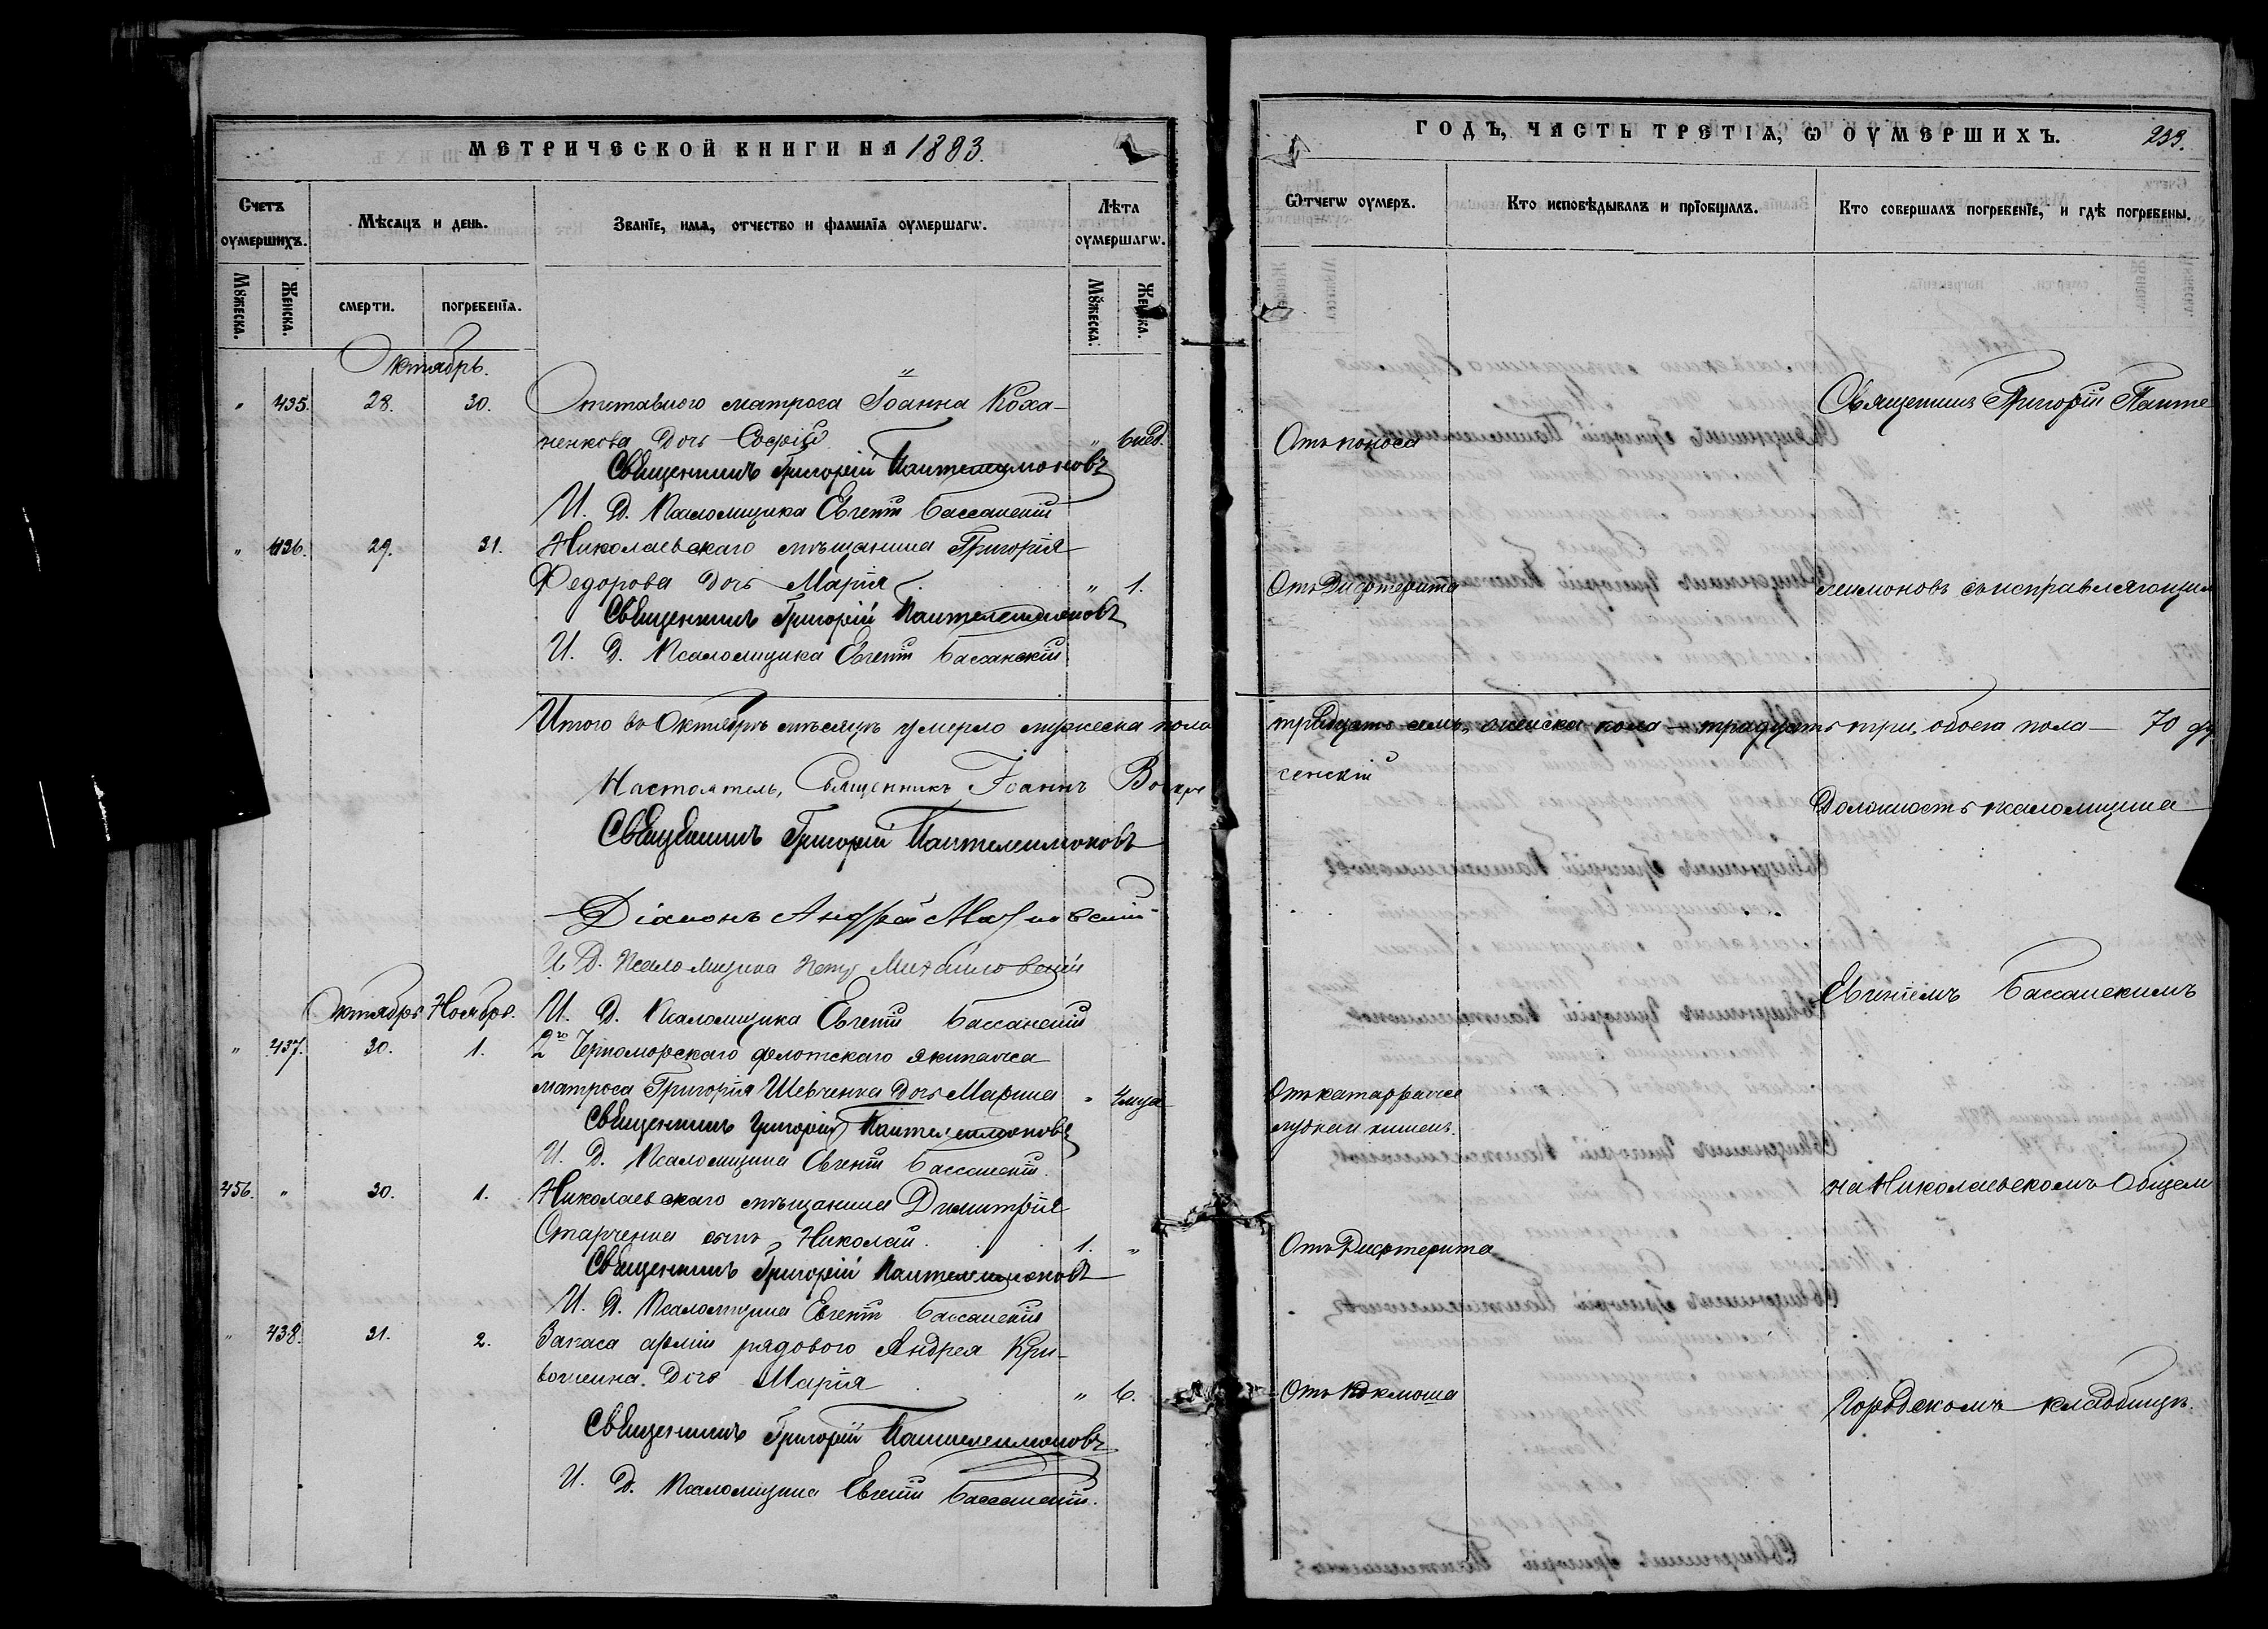 МЕТРИЧЕСКОЙ КНИГИ НА 1883.
Счетъ оумершихъ.
Мѣсяцъ и день.
Званїе, имѧ, отчество и фамилїа оумершагѡ.
Лѣта оумершагѡ.
Мꙋжеска.
Женска.
смерти.
погребенїѧ.
Мꙋжеска.
Женска.
Октябрь.
" 435. 28. 30. Отставного матроса Іоанна Коха-
ненкова дочь Софія " 6 нед.
Священникъ Григорій Пантелеимоновъ
И. Д. Псаломщика Евгеній Бассанскій
" 436. 29. 31. Николаевскаго мѣщанина Григорія
Федорова дочь Марія " 1.
Священникъ Григорій Пантелеимоновъ
И. Д. Псаломщика Евгеній Бассанскій
Итого въ Октябрѣ мѣсяцѣ умерло мужеска пола
Настоятель, Священникъ Іоаннъ Воскре
Священникъ Григорій Пантелеимоновъ
Діаконъ Андрей
И. Д. Псаломщика Петръ Михайловскій
И. Д. Псаломщика Евгеній Бассанскій
Октябрь Ноябрь.
" 437. 30. 1. 2го Черноморскаго флотскаго экипажа
матроса Григорія Шевченка дочь Марина " 4 мца
Священникъ Григорій Пантелеимоновъ
И. Д. Псаломщика Евгеній Бассанскій.
456. " 30. 1. Николаевскаго мѣщанина Димитрія
Старченка сынъ Николай. 1. "
Священникъ Григорій Пантелеимоновъ
И. Д. Псаломщика Евгеній Бассанскій
" 438. 31. 2. Запаса арміи рядового Андрея Кри-
вошеина дочь Марія " 6.
Священникъ Григорій Пантелеимоновъ
И. Д. Псаломщика Евгеній Бассанскій.
ГОДЪ, ЧАСТЬ ТРЕТІѦ, Ѡ ОУМЕРШИХЪ. 233.
Ѿчегѡ оумеръ.
Кто исповѣдывалъ и прїобщалъ.
Кто совершалъ погребенїе, и гдѣ погребены.
Священникъ Григорій Панте
Отъ поноса
Отъ Дифтерита
леимоновъ съ исправляющим
тридцать семь, женска пола — тридцать три, обоего пола — 70 ду
сенскій
Должность псаломщика
Евгеніемъ Бассанскимъ
Отъ катарра
кишекъ.
на Николаевскомъ Общем
Отъ Дифтерита
Отъ Коклюша
Городскомъ кладбищѣ.